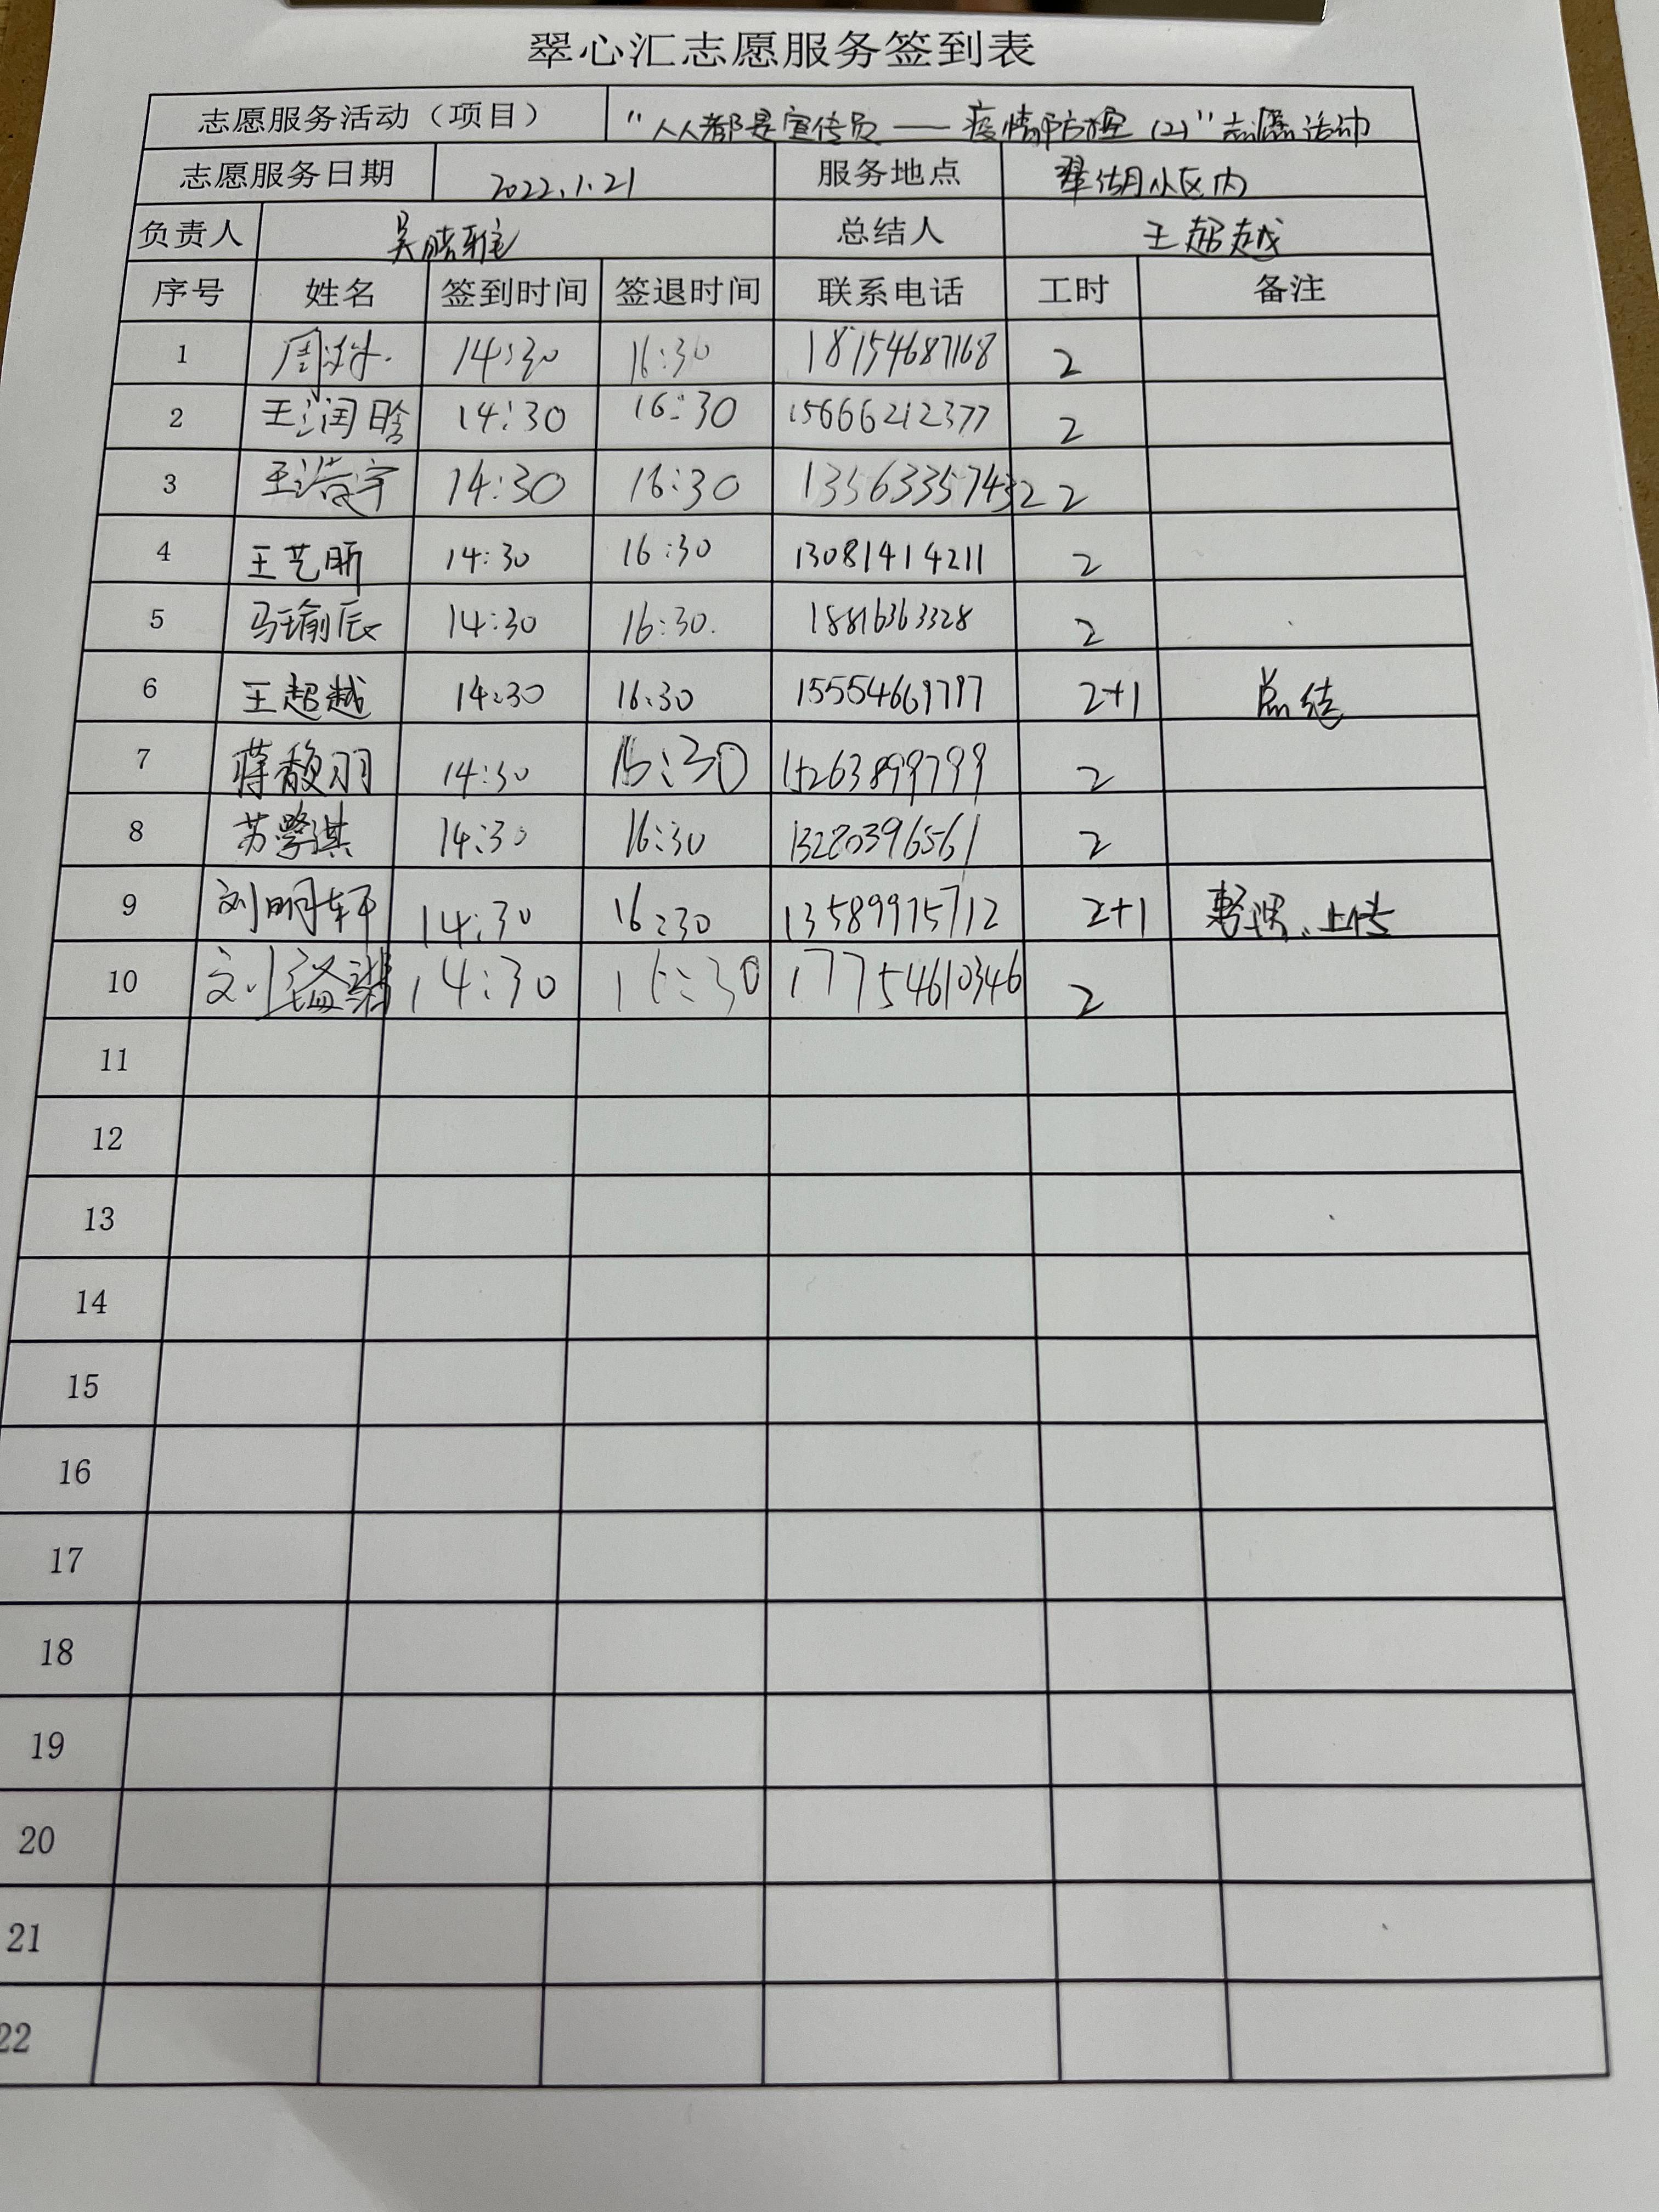 翠心汇志愿服务签到表
志愿服务活动（项目） "人人都是宣传员——疫情防控（2）"志愿活动
志愿服务日期 2022.1.21 服务地点 翠湖小区内
负责人 吴 雅 总结人 王超越
序号 姓名 签到时间 签退时间 联系电话 工时 备注
1 周 14:30 16:30 18154687168 2
2 王润晗 14:30 16:30 15666212377 2
3 王浩宇 14:30 16:30 2
4 王艺昕 14:30 16:30 13081414211 2
5 马瑜辰 14:30 16:30. 18816363328 2
6 王超越 14:30 16:30 15554669797 2+1 总结
7 蒋馥羽 14:30 :30 15263899799 2
8 苏擎淇 14:30 16:30 13280396561 2
9 刘明轩 14:30 16:30 13589975712 2+1 、上传
10 刘 14:30 16:30 17754610346 2
11
12
13
14
15
16
17
18
19
20
21
22